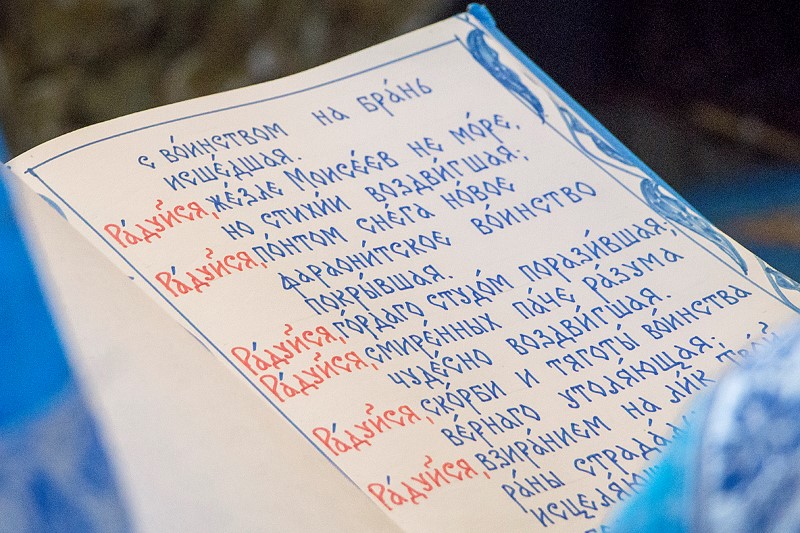 с во́инством на бра́нь
исше́дшая.
Ра́дуйся, же́зле Моисе́ев не мо́ре,
но стихи́и воздви́гшая;
Ра́дуйся, по́нтом сне́га но́вое
фараони́тское во́инство
покры́вшая.
Ра́дуйся, го́рдаго студо́м порази́вшая;
Ра́дуйся, смире́нных па́че ра́зума
чуде́сно воздви́гшая.
Ра́дуйся, ско́рби и тяготы́ во́инства
ве́рнаго утоля́ющая;
Ра́дуйся, взира́нием на ли́к Твой
ра́ны